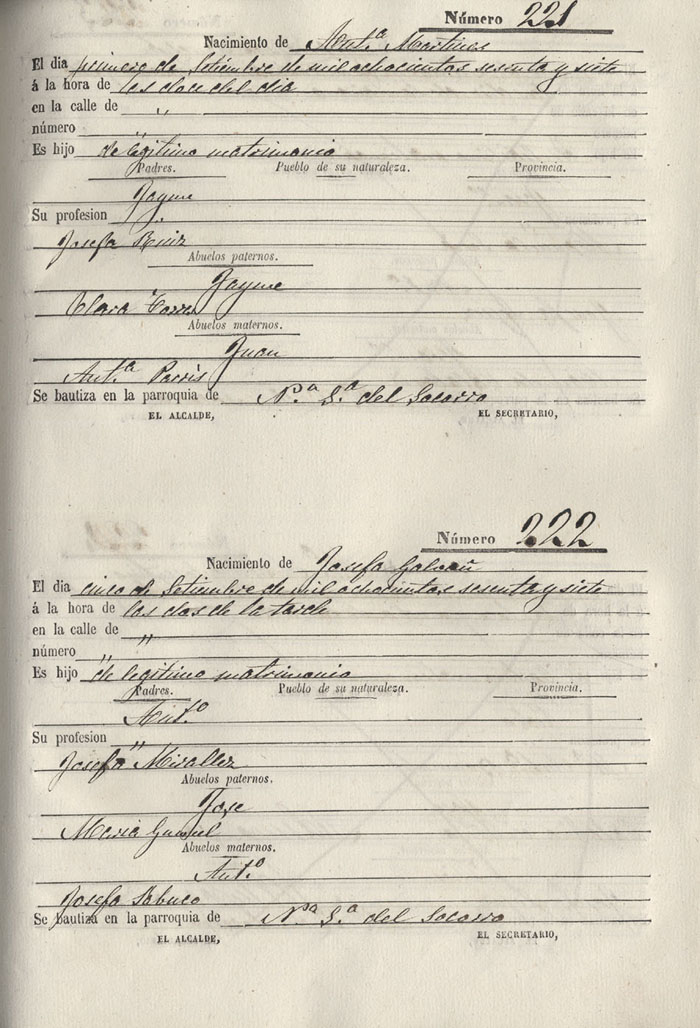 Número 221
Nacimiento de Ant.ª Martines
El dia primero de Setiembre de mil ochocientos sesenta y siete
á la hora de las doce del dia
en la calle de "
número "
Es hijo de legitimo matrimonio
Padres. Pueblo de su naturaleza. Provincia.
Jayme
Su profesion "
Josefa Ruiz
Abuelos paternos.
Jayme
Clara Torres
Abuelos maternos.
Juan
Ant.ª
Se bautiza en la parroquia de N.ª S.ª del Socorro
EL ALCALDE, EL SECRETARIO,
Número 222
Nacimiento de Josefa
El dia cinco de Setiembre de mil ochocientos sesenta y siete
á la hora de las dos de la tarde
en la calle de "
número "
Es hijo de legitimo matrimonio
Padres. Pueblo de su naturaleza. Provincia.
Ant.º
Su profesion "
Josefa Miralles
Abuelos paternos.
Jose
Maria
Abuelos maternos.
Ant.º
Josefa Sabuco
Se bautiza en la parroquia de N.ª S.ª del Socorro
EL ALCALDE, EL SECRETARIO,